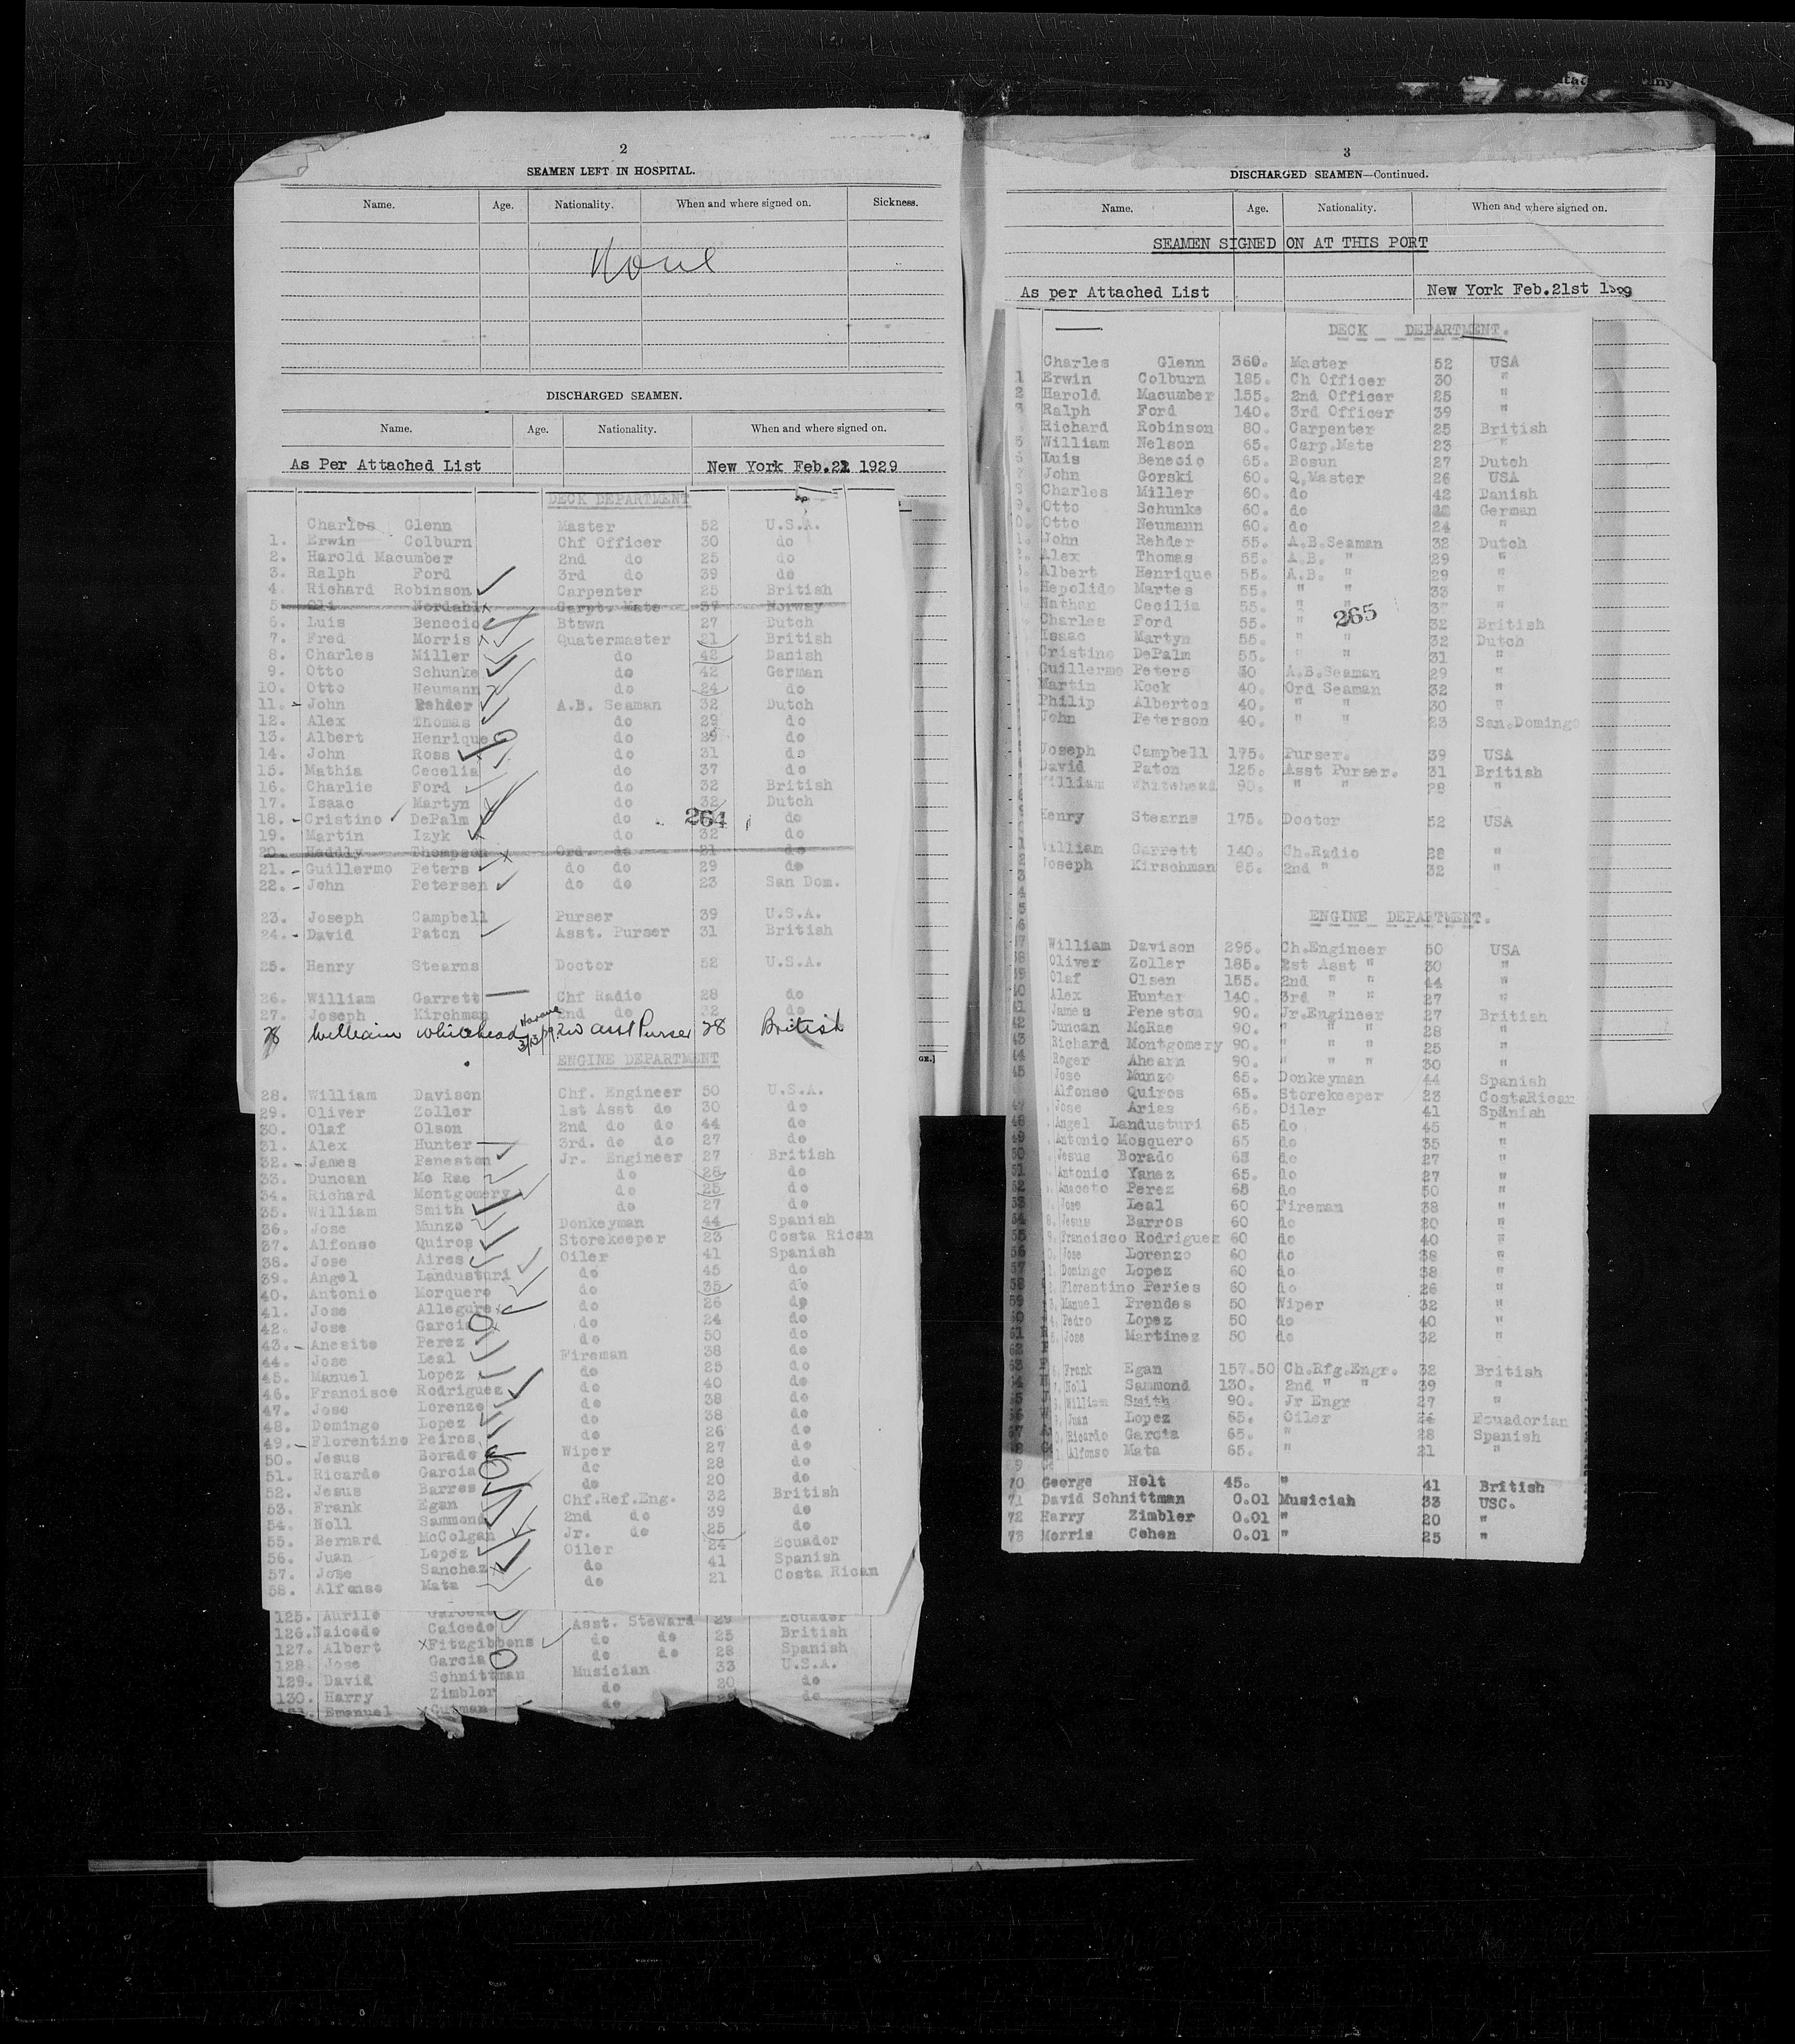 2
SEAMEN LEFT IN HOSPITAL.
Name. Age. Nationality. When and where signed on. Sickness.
None
DISCHARGED SEAMEN.
Name. Age. Nationality. When and where signed on.
As Per Attached List New York Feb. 1929
DECK DEPARTMENT
Charles Glenn Master 52 U.S.A.
1. Erwin Colburn Chf Officer 30 do
2. Harold Macumber 2nd do 25 do
3. Ralph Ford 3rd do 39 do
4. Richard Robinson Carpenter 25 British
5. Nordahl Carpt. Mate 37 Norway
6. Luis Benecio Btswn 27 Dutch
7. Fred Morris Quatermaster 21 British
8. Charles Miller do 42 Danish
9. Otto Schunke do 42 German
10. Otto Neumann do 24 do
11. - John Rehder A.B. Seaman 32 Dutch
12. Alex Thomas do 29 do
13. Albert Henrique do 29 do
14. John Ross do 31 do
15. Mathia Cecelia do 37 do
16. Charlie Ford do 32 British
17. Isaac Martyn do 32 Dutch
18. - Cristino DePalm do 264 do
19. Martin Izyk do 32 do
20. Haddly Thompson Ord. do 21 do
21. - Guillermo Peters do do 29 do
22. - John Petersen do do 23 San Dom.
23. Joseph Campbell Purser 39 U.S.A.
24. - David Paton Asst. Purser 31 British
25. Henry Stearns Doctor 52 U.S.A.
26. William Garrett Chf Radio 28 do
27. Joseph Kirchman 2nd do 32 do
28 William Whitehead Havana 3/13/29 2nd asst Purser 28 British
ENGINE DEPARTMENT
28. William Davison Chf. Engineer 50 U.S.A.
29. Oliver Zoller 1st Asst do 30 do
30. Olaf Olson 2nd do do 44 do
31. Alex Hunter 3rd. do do 27 do
32. - James Peneston Jr. Engineer 27 British
33. Duncan Mc Rae do 28 do
34. Richard Montgomery do 25 do
35. William Smith do 27 do
36. Jose Munzo Donkeyman 44 Spanish
37. Alfonso Quiros Storekeeper 23 Costa Rican
38. Jose Aires Oiler 41 Spanish
39. Angel Landusturi do 45 do
40. Antonio Morquero do 35 do
41. Jose Allegure do 26 do
42. Jose Garcia do 24 do
43. - Anesito Perez do 50 do
44. Jose Leal Fireman 38 do
45. Manuel Lopez do 25 do
46. Francisco Rodriguez do 40 do
47. Jose Lorenzo do 38 do
48. Domingo Lopez do 38 do
49. - Florentino Peires do 26 do
50. Jesus Borado Wiper 27 do
51. Ricardo Garcia do 28 do
52. Jesus Barres do 20 do
53. Frank Egan Chf.Ref.Eng. 32 British
54. Noll Sammond 2nd do 39 do
55. Bernard McColgan Jr. do 25 do
56. Juan Lopez Oiler 24 Ecuador
57. Jose Sanchez do 41 Spanish
58. Alfonso Mata do 21 Costa Rican
125. Aurilo Asst. Steward 29 Ecuador
126. Naicedo Caicedo do do 25 British
127. Albert Fitzgibbons do do 28 Spanish
128. Jose Garcia Musician 33 U.S.A.
129. David Schnittman do 20 do
130. Harry Zimbler do do
Emanuel Gutman
3
DISCHARGED SEAMEN—Continued.
Name. Age. Nationality. When and where signed on.
SEAMEN SIGNED ON AT THIS PORT
As per Attached List New York Feb.21st
DECK DEPARTMENT.
Charles Glenn 360. Master 52 USA
1 Erwin Colburn 185. Ch Officer 30 "
2 Harold Macumber 155. 2nd Officer 25 "
3 Ralph Ford 140. 3rd Officer 39 "
Richard Robinson 80. Carpenter 25 British
5 William Nelson 65. Carp.Mate 23 "
Luis Benecio 65. Bosun 27 Dutch
John Gorski 60. Q.Master 26 USA
8 Charles Miller 60. do 42 Danish
9. Otto Schunke 60. do German
0. Otto Neumann 60. do 24 "
John Rehder 55. A.B.Seaman 32 Dutch
Alex Thomas 55. A.B. " 29 "
Albert Henrique 55. A.B. " 29 "
Hepolido Martes 55. " " 33 "
Nathan Cecilia 55. " " 37 "
265
Charles Ford 55. " 32 British
Isaac Martyn 55. " " 32 Dutch
Cristino DePalm 55. " " 31 "
Guillermo Peters 30 A.B.Seaman 29 "
Martin Kock 40. Ord Seaman 32 "
Philip Albertos 40. " " 30 "
John Peterson 40. " " 23 San.Domingo
Joseph Campbell 175. Purser. 39 USA
David Paton 125. Asst Purser. 31 British
William Whitehead 90. " " 28 "
Henry Stearns 175. Doctor 52 USA
William Garrett 140. Ch.Radio 28 "
Joseph Kirschman 85. 2nd " 32 "
ENGINE DEPARTMENT.
37 William Davison 295. Ch.Engineer 50 USA
38 Oliver Zoller 185. 1st Asst " 30 "
39 Olaf Olsen 155. 2nd " " 44 "
40 Alex Hunter 140. 3rd " " 27 "
41 James Peneston 90. Jr.Engineer 27 British
42 Duncan McRae 90. " " " 28 "
43 Richard Montgomery 90. " " " 25 "
44 Roger Ahearn 90. " " " 30 "
45 Jose Munzo 65. Donkeyman 44 Spanish
Alfonso Quiros 65. Storekeeper 23 CostaRican
47 Jose Arias 65. Oiler 41 Spanish
48 Angel Landusturi 65 do 45 "
49 Antonio Mosquero 65 do 35 "
50 Jesus Borado 65 do 27 "
51 Antonio Yanez 65. do 27 "
52 Anaceto Perez 65 do 50 "
53 Jose Leal 60 Fireman 38 "
54 Jesus Barros 60 do 20 "
55 Francisco Rodriguez 60 do 40 "
56 Jose Lorenzo 60 do 38 "
57 Domingo Lopez 60 do 38 "
58 Florentino Peries 60 do 26 "
59 Manuel Prendes 50 Wiper 32 "
60 Pedro Lopez 50 do 40 "
61 Jose Martinez 50 do 32 "
62
63 Frank Egan 157.50 Ch.Rfg.Engr. 32 British
64 Noll Sammond 130. 2nd " " 39 "
65 William Smith 90. Jr Engr 27 "
66 Juan Lopez 65. Oiler Ecuadorian
67 Ricardo Garcia 65. " 28 Spanish
68 Alfonso Mata 65. " 21 "
70 George Holt 45. " 41 British
71 David Schnittman 0.01 Musician 33 USC.
72 Harry Zimbler 0.01 " 20 "
73 Morris Cohen 0.01 " 25 "